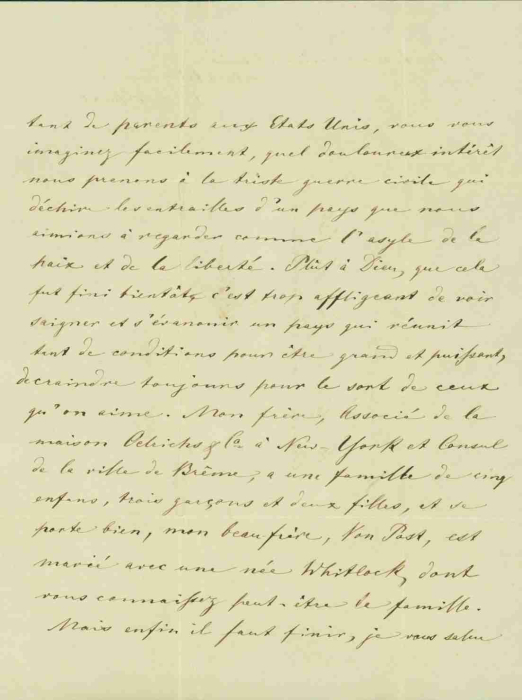 tant de parents aux Etats Unis, vous vous
imaginez facilement, quel douloureux intérêt
nous prenons à la triste guerre civile qui
déchire les entrailles d'un pays que nous
aimions à regarder comme l'asyle de la
paix et de la liberté. Plût à Dieu, que cela
fut fini bientôt, c'est trop affligeant de voir
saigner et s'évanouir un pays qui réunit
tant de conditions pour être grand et puissant,
de craindre toujours pour le sort de ceux
qu'on aime. Mon frère, Associé de la
maison Oelrichs & Co à New-York et Consul
de la ville de Brême, a une famille de cinq
enfans, trois garçons et deux filles, et se
porte bien, mon beaufrère, Von Post, est
marié avec une née Whitlock, dont
vous connaissez peut-être la famille.
Mais enfin il faut finir, je vous salue